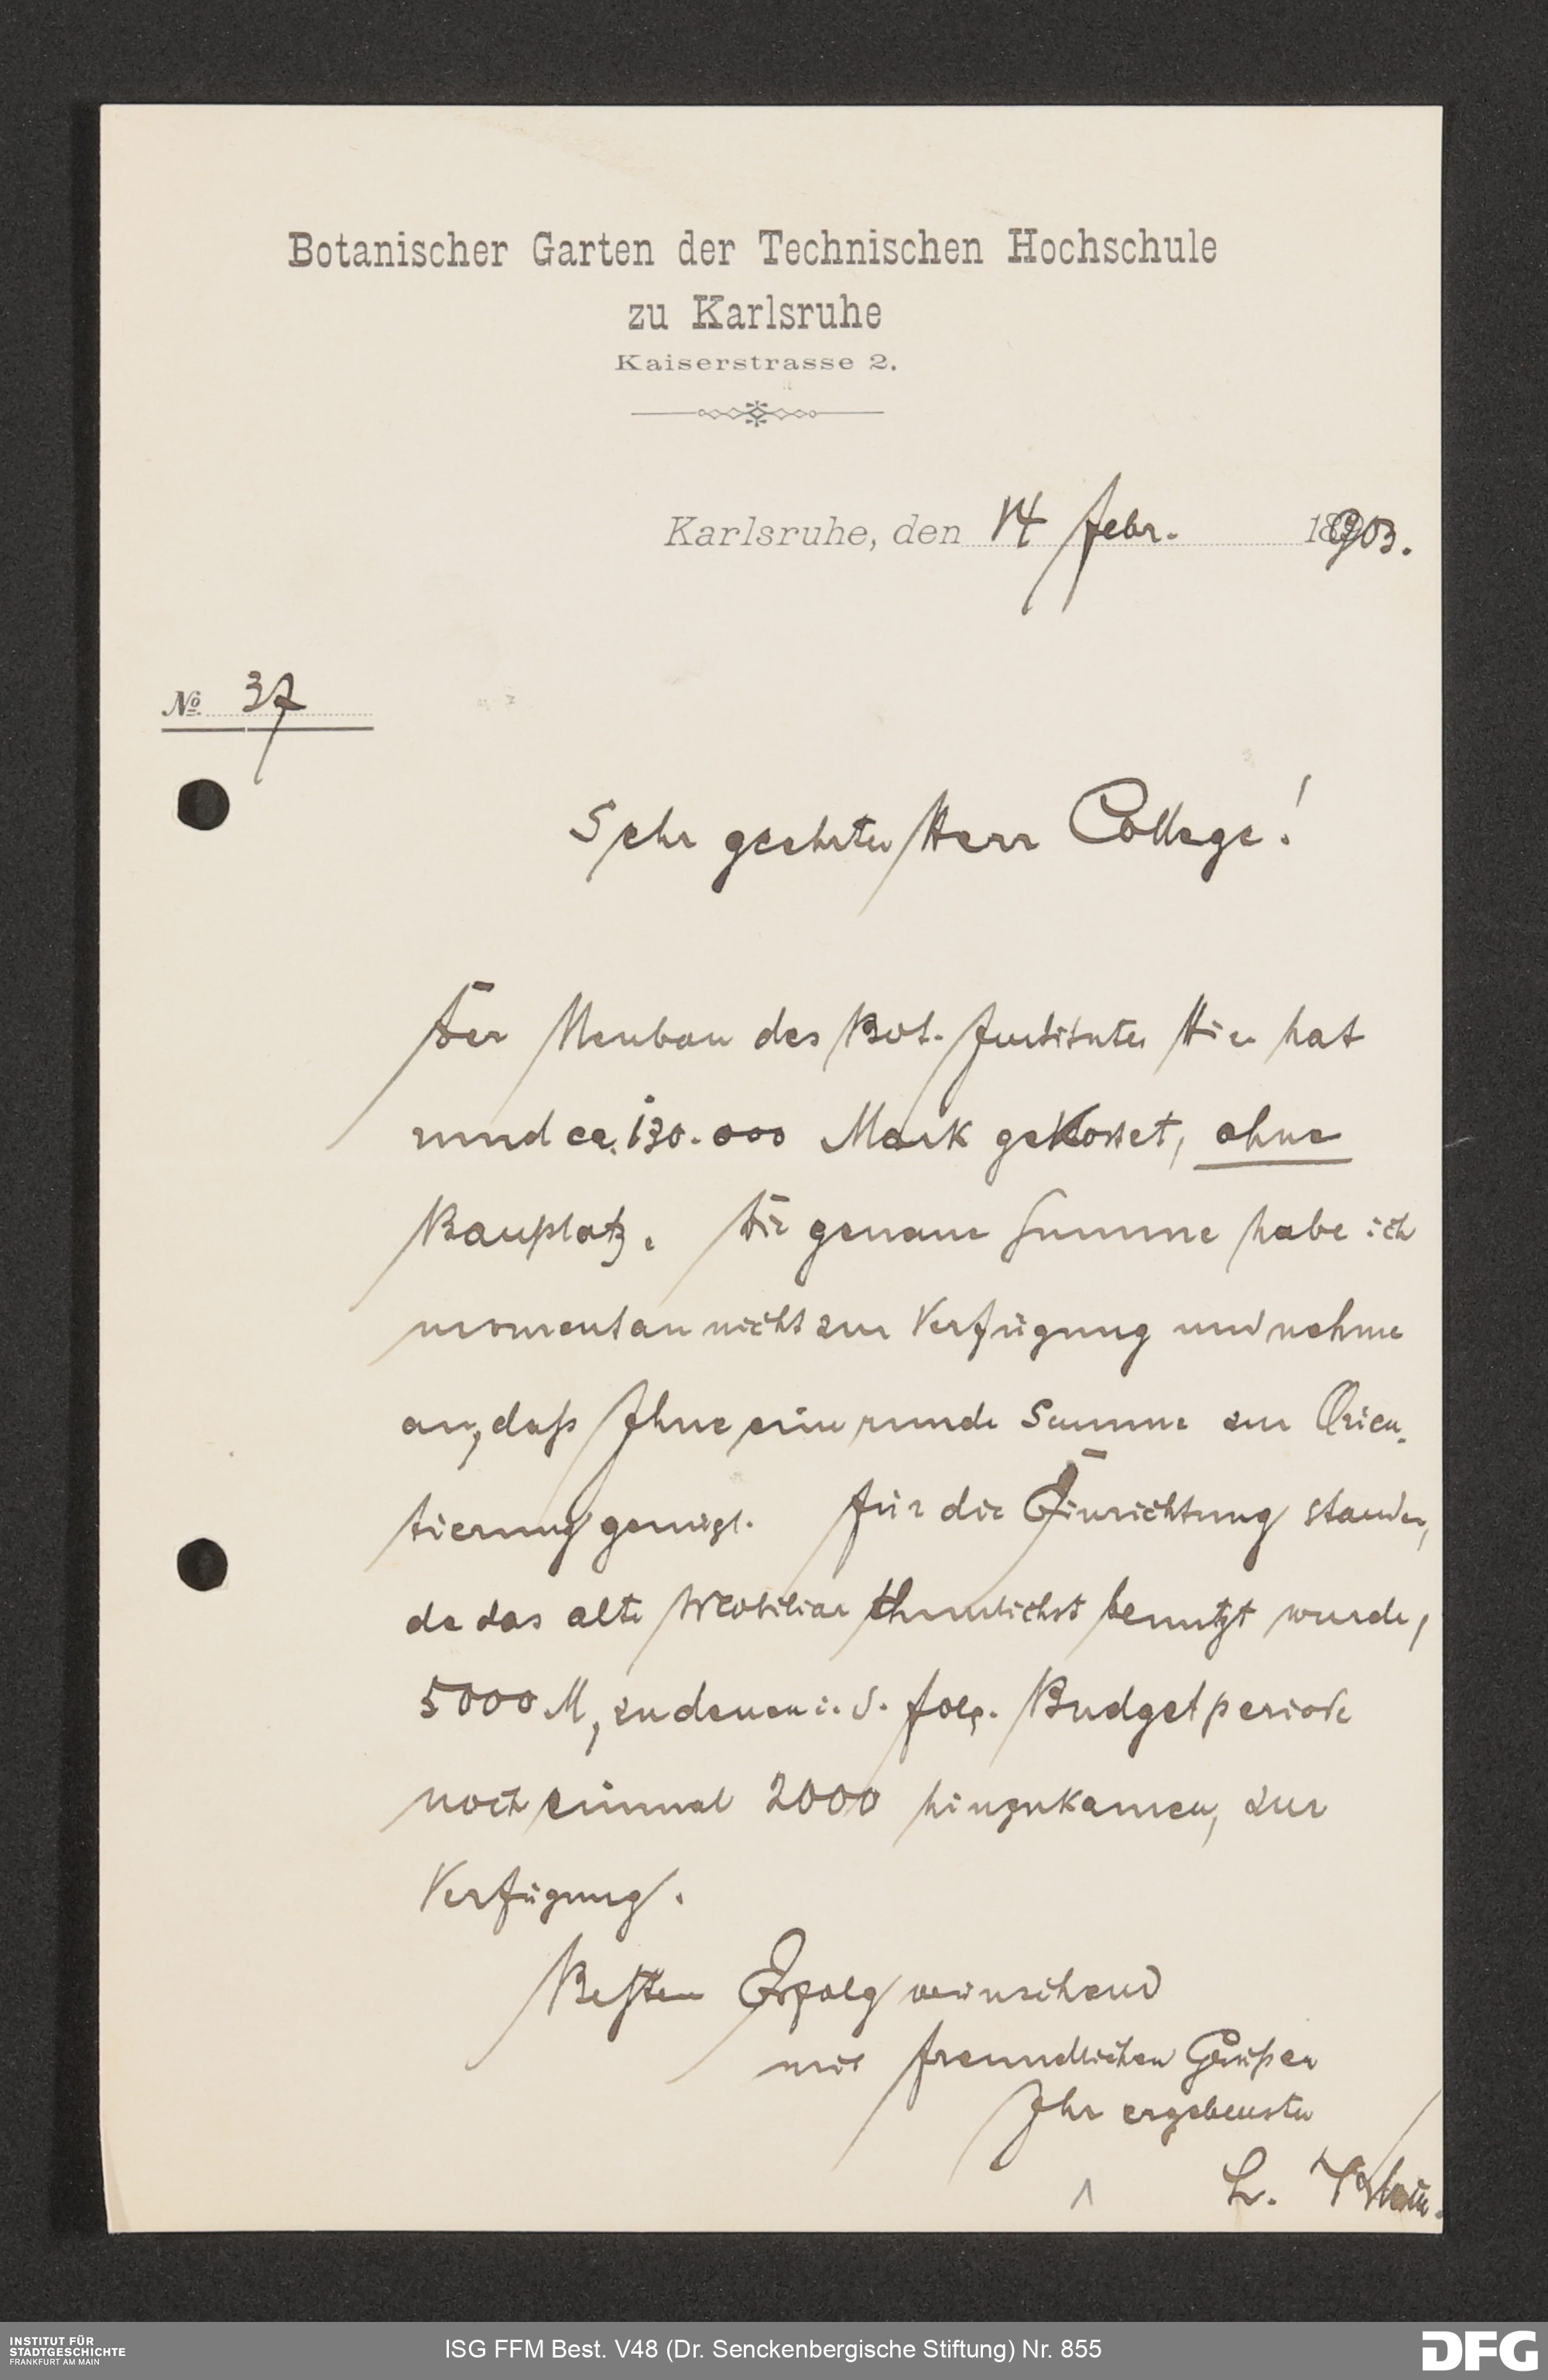 Botanischer Garten der Technischen Hochschule
zu Karlsruhe
Kaiserstrasse 2.
Karlsruhe, den 14 Febr. 1903.
No 37
Sehr geehrter Herr College!
Der Neubau des Bot. Institutes hier hat
rund ca. 130.000 Mark gekostet, ohne
Bauplatz. Die genaue Summe habe ich
momentan nicht zur Verfügung und nehme
an, daß Ihne eine runde Summe zur Orien-
tierung genügt. Für die Einrichtung standen,
da das alte Mobiliar thunlichst benutzt wurde,
5000 M, zu denen i. d. folg. Budgetperiode
noch einmal 2000 hinzukamen, zur
Verfügung.
Besten Erfolg wünschend
mit freundlichen Grüßen
Ihr ergebenster
L. Klein.
INSTITUT FÜR
STADTGESCHICHTE
FRANKFURT AM MAIN
ISG FFM Best. V48 (Dr. Senckenbergische Stiftung) Nr. 855
DFG